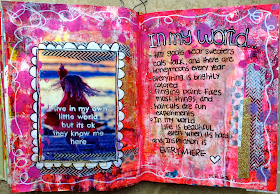 I live in my own
little world
but its ok
they know me
here
In my World..
tiny goats wear sweaters
cats talk, and there are
honeymoons every year
everything is brightly
colored
flinging paint fixes
most things, and
haircuts are fun
experiments
In my world
life is beautiful
even when its hard
and Inspiration is
EVERYWHERE